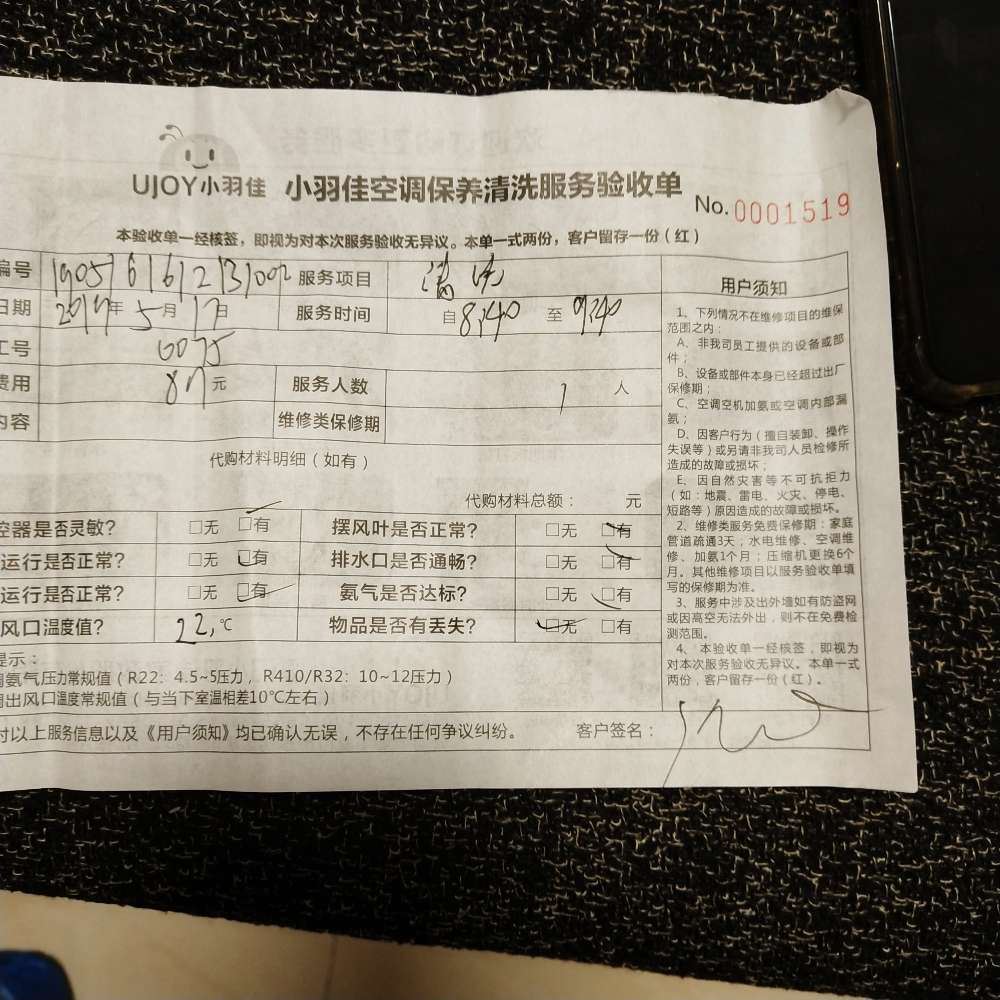 UJOY小羽佳 小羽佳空调保养清洗服务验收单
No.0001519
本验收单一经核签，即视为对本次服务验收无异议。本单一式两份，客户留存一份（红）
编号 服务项目 清洗
日期 年 5月17日 服务时间 自8:40 至9:40
工号 0075
费用 元 服务人数 1人
内容 维修类保修期
代购材料明细（如有）
代购材料总额： 元
控器是否灵敏？ □无 □有 摆风叶是否正常？ □无 □有
运行是否正常？ □无 □有 排水口是否通畅？ □无 □有
运行是否正常？ □无 □有 氨气是否达标？ □无 □有
风口温度值？ 22.℃ 物品是否有丢失？ □无 □有
提示：
调氨气压力常规值（R22：4.5~5压力，R410/R32：10~12压力）
调出风口温度常规值（与当下室温相差10℃左右）
对以上服务信息以及《用户须知》均已确认无误，不存在任何争议纠纷。 客户签名：
用户须知
1、下列情况不在维修项目的维保
范围之内：
A、非我司员工提供的设备或部
件；
B、设备或部件本身已经超过出厂
保修期；
C、空调空机加氨或空调内部漏
氨；
D、因客户行为（擅自装卸、操作
失误等）或另请非我司人员检修所
造成的故障或损坏；
E、因自然灾害等不可抗拒力
（如：地震、雷电、火灾、停电、
短路等）原因造成的故障或损坏。
2、维修类服务免费保修期：家庭
管道疏通3天；水电维修、空调维
修、加氨1个月；压缩机更换6个
月。其他维修项目以服务验收单填
写的保修期为准。
3、服务中涉及出外墙如有防盗网
或因高空无法外出，则不在免费检
测范围。
4、本验收单一经核签，即视为
对本次服务验收无异议。本单一式
两份，客户留存一份（红）。